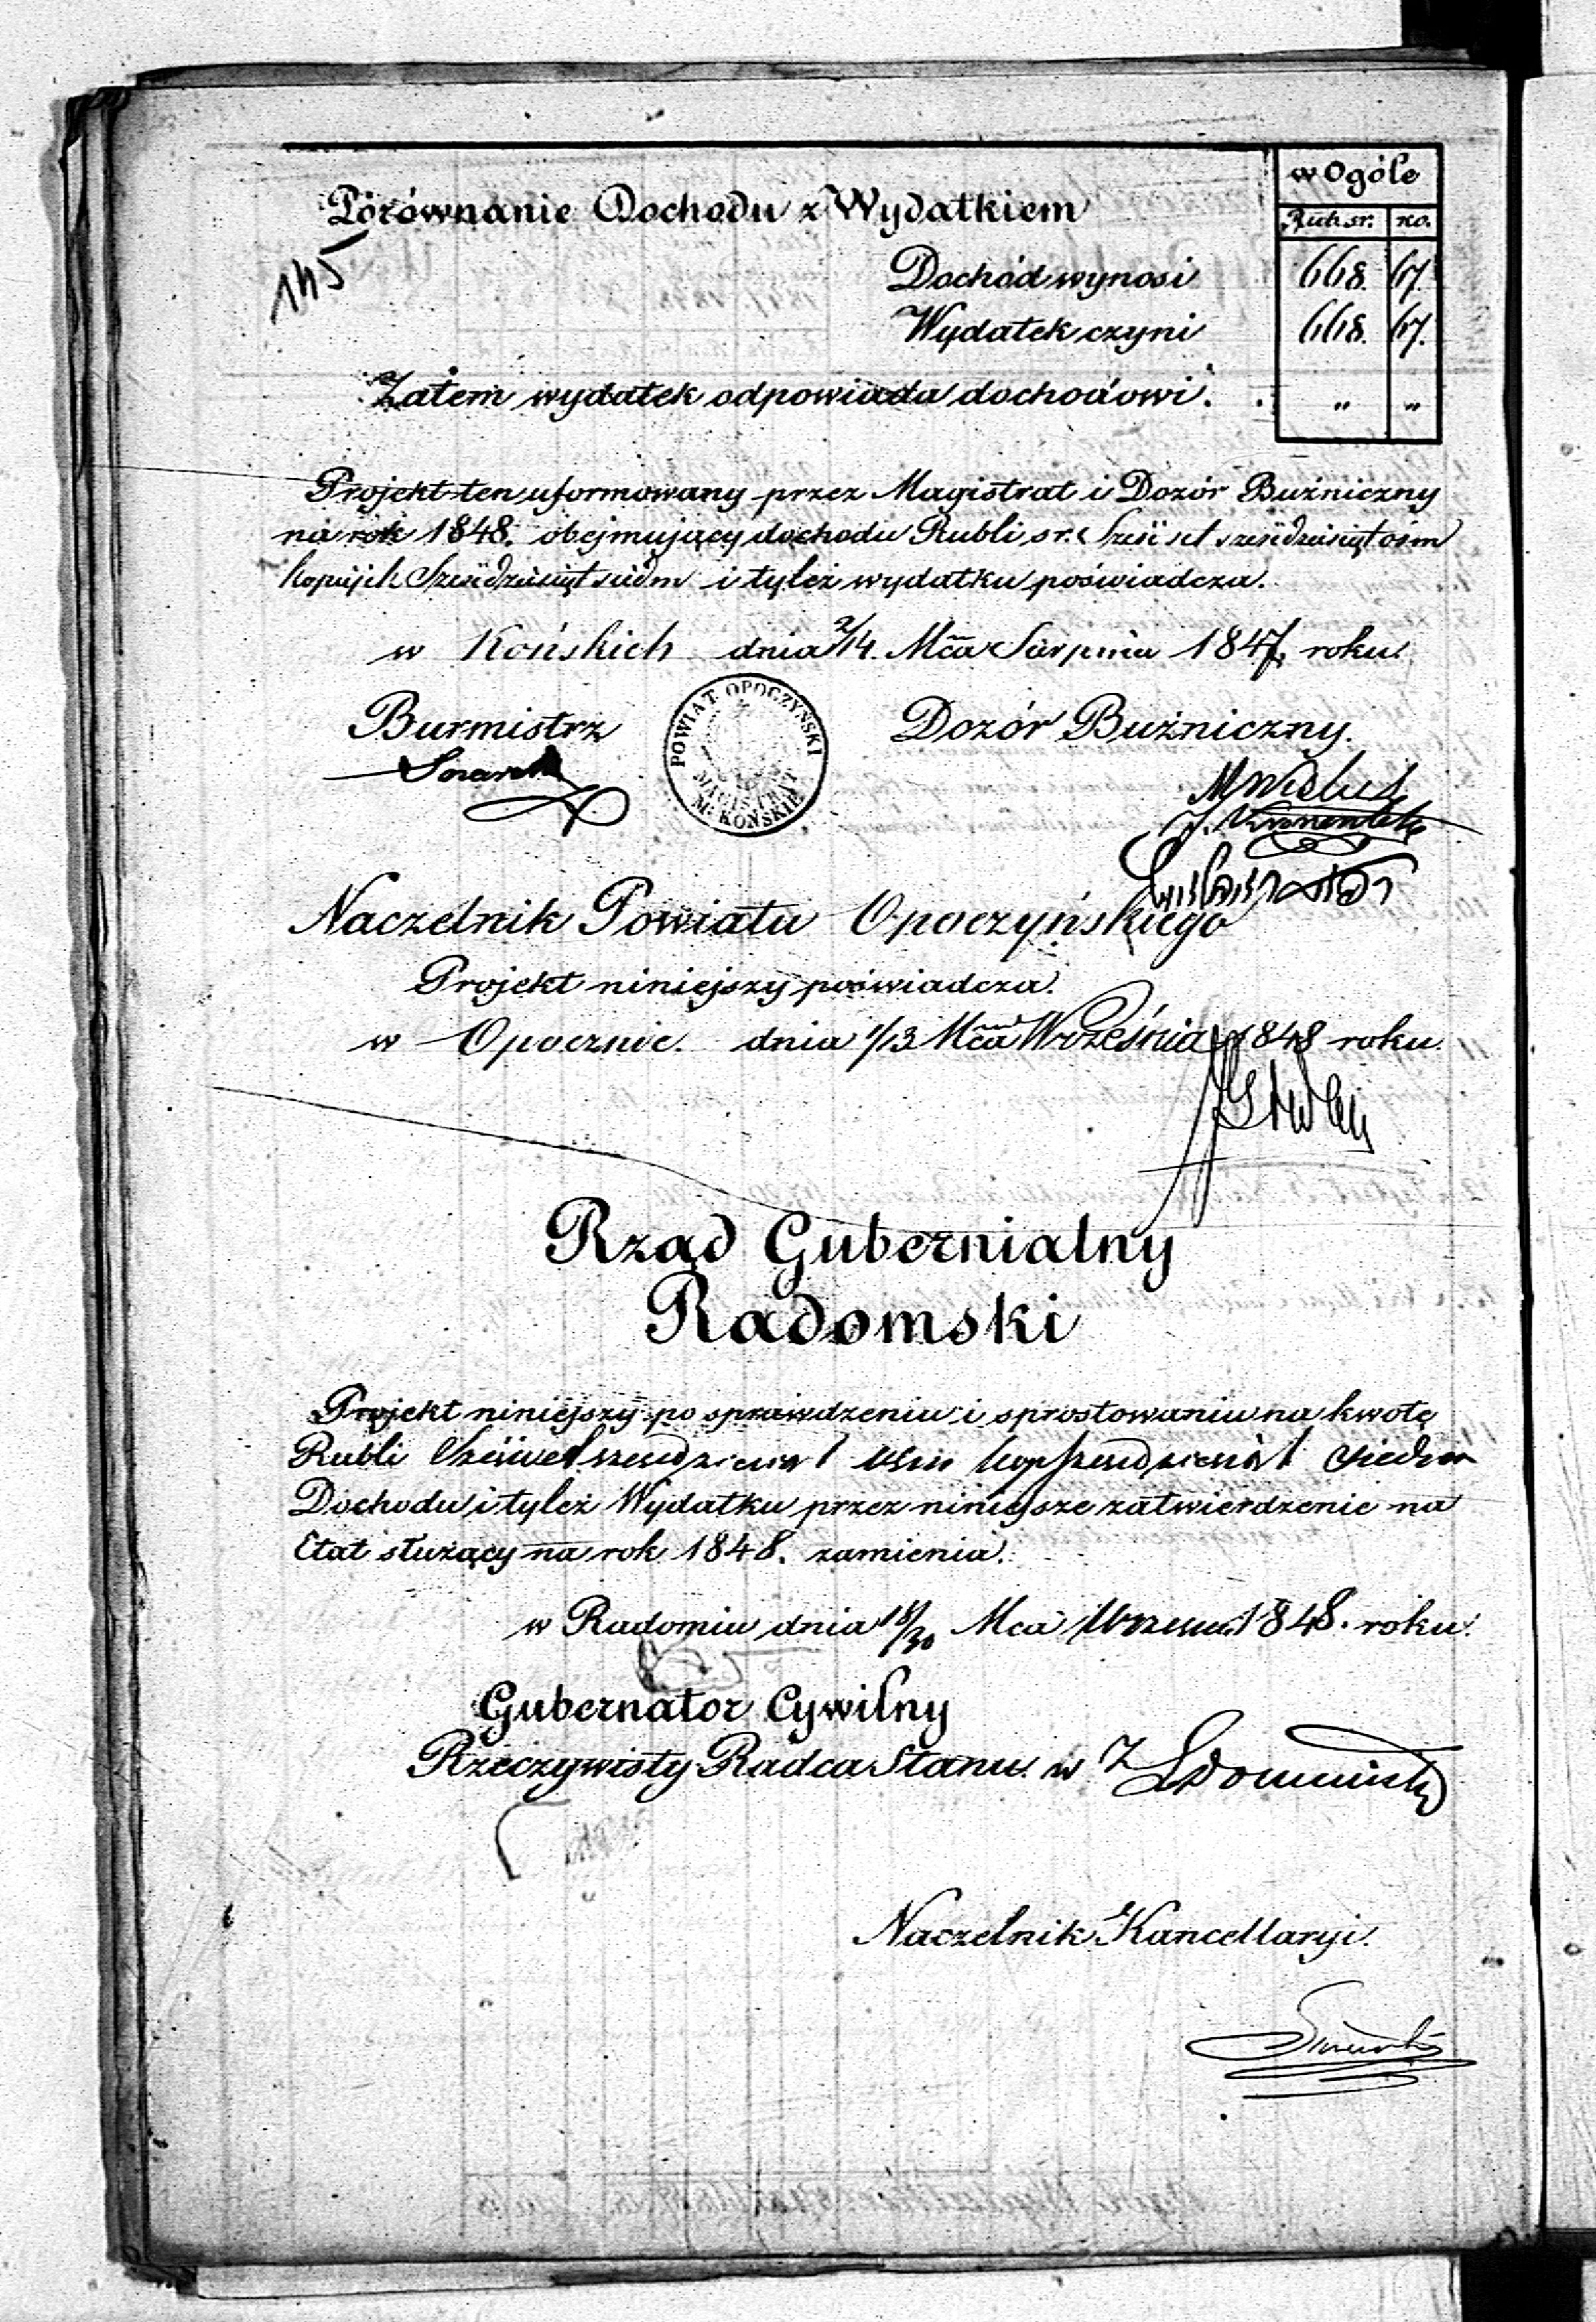 w Ogóle
Porównanie Dochodu z Wydatkiem
Rub. sr. ko.
145
Dochód wynosi 668. 67.
Wydatek czyni 668. 67.
Zatem wydatek odpowiada dochodowi. „ „
Projekt ten uformowany przez Magistrat i Dozór Bużniczny
na rok 1848. obejmujący dochodu Rubli sr. Sześćset sześćdziesiąt ośm
kopijek Sześćdziesiąt siedm i tyleż wydatku poświadcza.
w Końskich dnia 2/14. Mca Sierpnia 1847. roku.
Burmistrz Dozór Bużniczny.
POWIAT OPOCZYŃSKI
MAGISTRAT
M. KOŃSKIE
Naczelnik Powiatu Opoczyńskiego
Projekt niniejszy poświadcza.
w Opocznie. dnia 1/13 Mca Września 1848 roku.
Rząd Gubernialny
Radomski
Projekt niniejszy po sprawdzeniu i sprostowaniu na kwotę
Rubli Sześćset sześćdziesiąt ośm kop sześćdziesiąt siedm
Dochodu i tyleż Wydatku przez niniejsze zatwierdzenie na
Etat służący na rok 1848. zamienia.
w Radomiu dnia 18/30 Mca Wrześni 1848. roku.
Gubernator Cywilny
Rzeczywisty Radca Stanu. w Z
Naczelnik Kancellaryi.